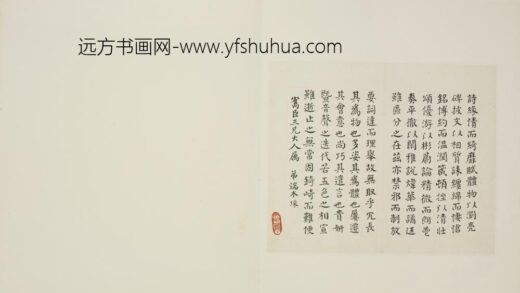 远方书画网-www.yfshuhua.com
詩緣情而綺靡賦體物以瀏亮
碑披文以相質誄纏綿而悽愴
銘博約而溫潤箴頓挫以清壯
頌優游以彬蔚論精微而朗暢
奏平徹以閑雅說煒曄而譎誑
雖區分之在茲亦禁邪而制放
要詞達而理舉故無取乎冗長
其為物也多姿其為體也屢遷
其會意也尚巧其遣言也貴妍
暨音聲之迭代若五色之相宣
雖逝止之無常固錡崎而難便
嵩臣三兄大人属 弟端木埰